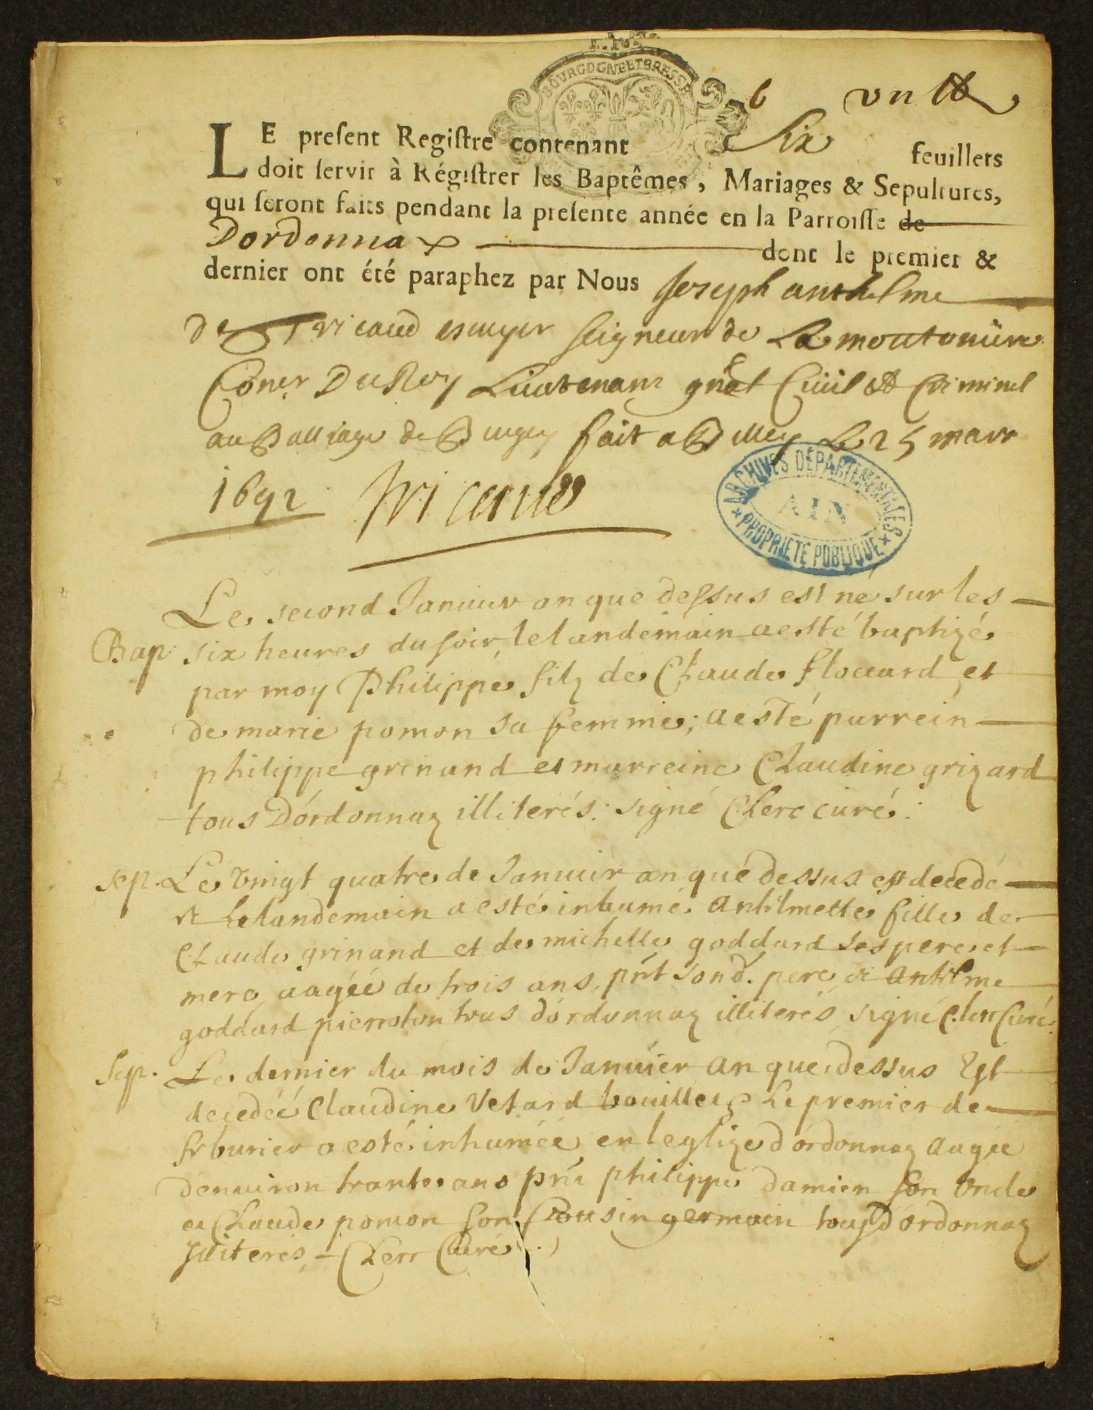 BOURGOGNE ET BRESSE
6 un
LE present Registre contenant Six feuillets
doit servir à Régistrer les Baptêmes, Mariages & Sepultures,
qui seront faits pendant la presente année en la Parroisse de
Dordonna dont le premier &
dernier ont été paraphez par Nous Joseph anthelme
de Tricaud escuyer seigneur de La
Coner Du Roy Lieutenant gnal Civil et Criminel
au Balliage de Bugey fait a Belley Le 25 mars
1692 Tricaud
ARCHIVES DÉPARTEMENTALES
AIN
PROPRIÉTÉ PUBLIQUE
Le second Januier an que dessus est né sur les
Bap. six heures du soir, le landemain a esté baptizé
par moy Philippe filz de Claude floccard et
de marie pomon sa femme; a esté parrein
philippe grinand et marreine Claudine grizard
tous Dórdonnaz illiterés: signé Clerc curé.
sep. Le vingt quatre de Januier an que dessus est decedé
et Le landemain a esté inhumé Anthlmette fille de
Claude grinand et de michelle goddard ses pere et
mere, aagéé de trois ans, pnt Sond. pere et Anthlme
goddard pierroton tous dórdonnaz illiterés, signé Clerc Curé.
Sep. Le dernier du mois de Januier an que dessus Est
decedéé Claudine Vetard Le premier de
feburier a esté inhuméé en leglize dórdonnaz aagéé
denuiron trante ans pnt philippe damien son Oncle
et Claude pomon son Cousin germain tous Dórdonnaz
Illiterés, Clerc Curé.